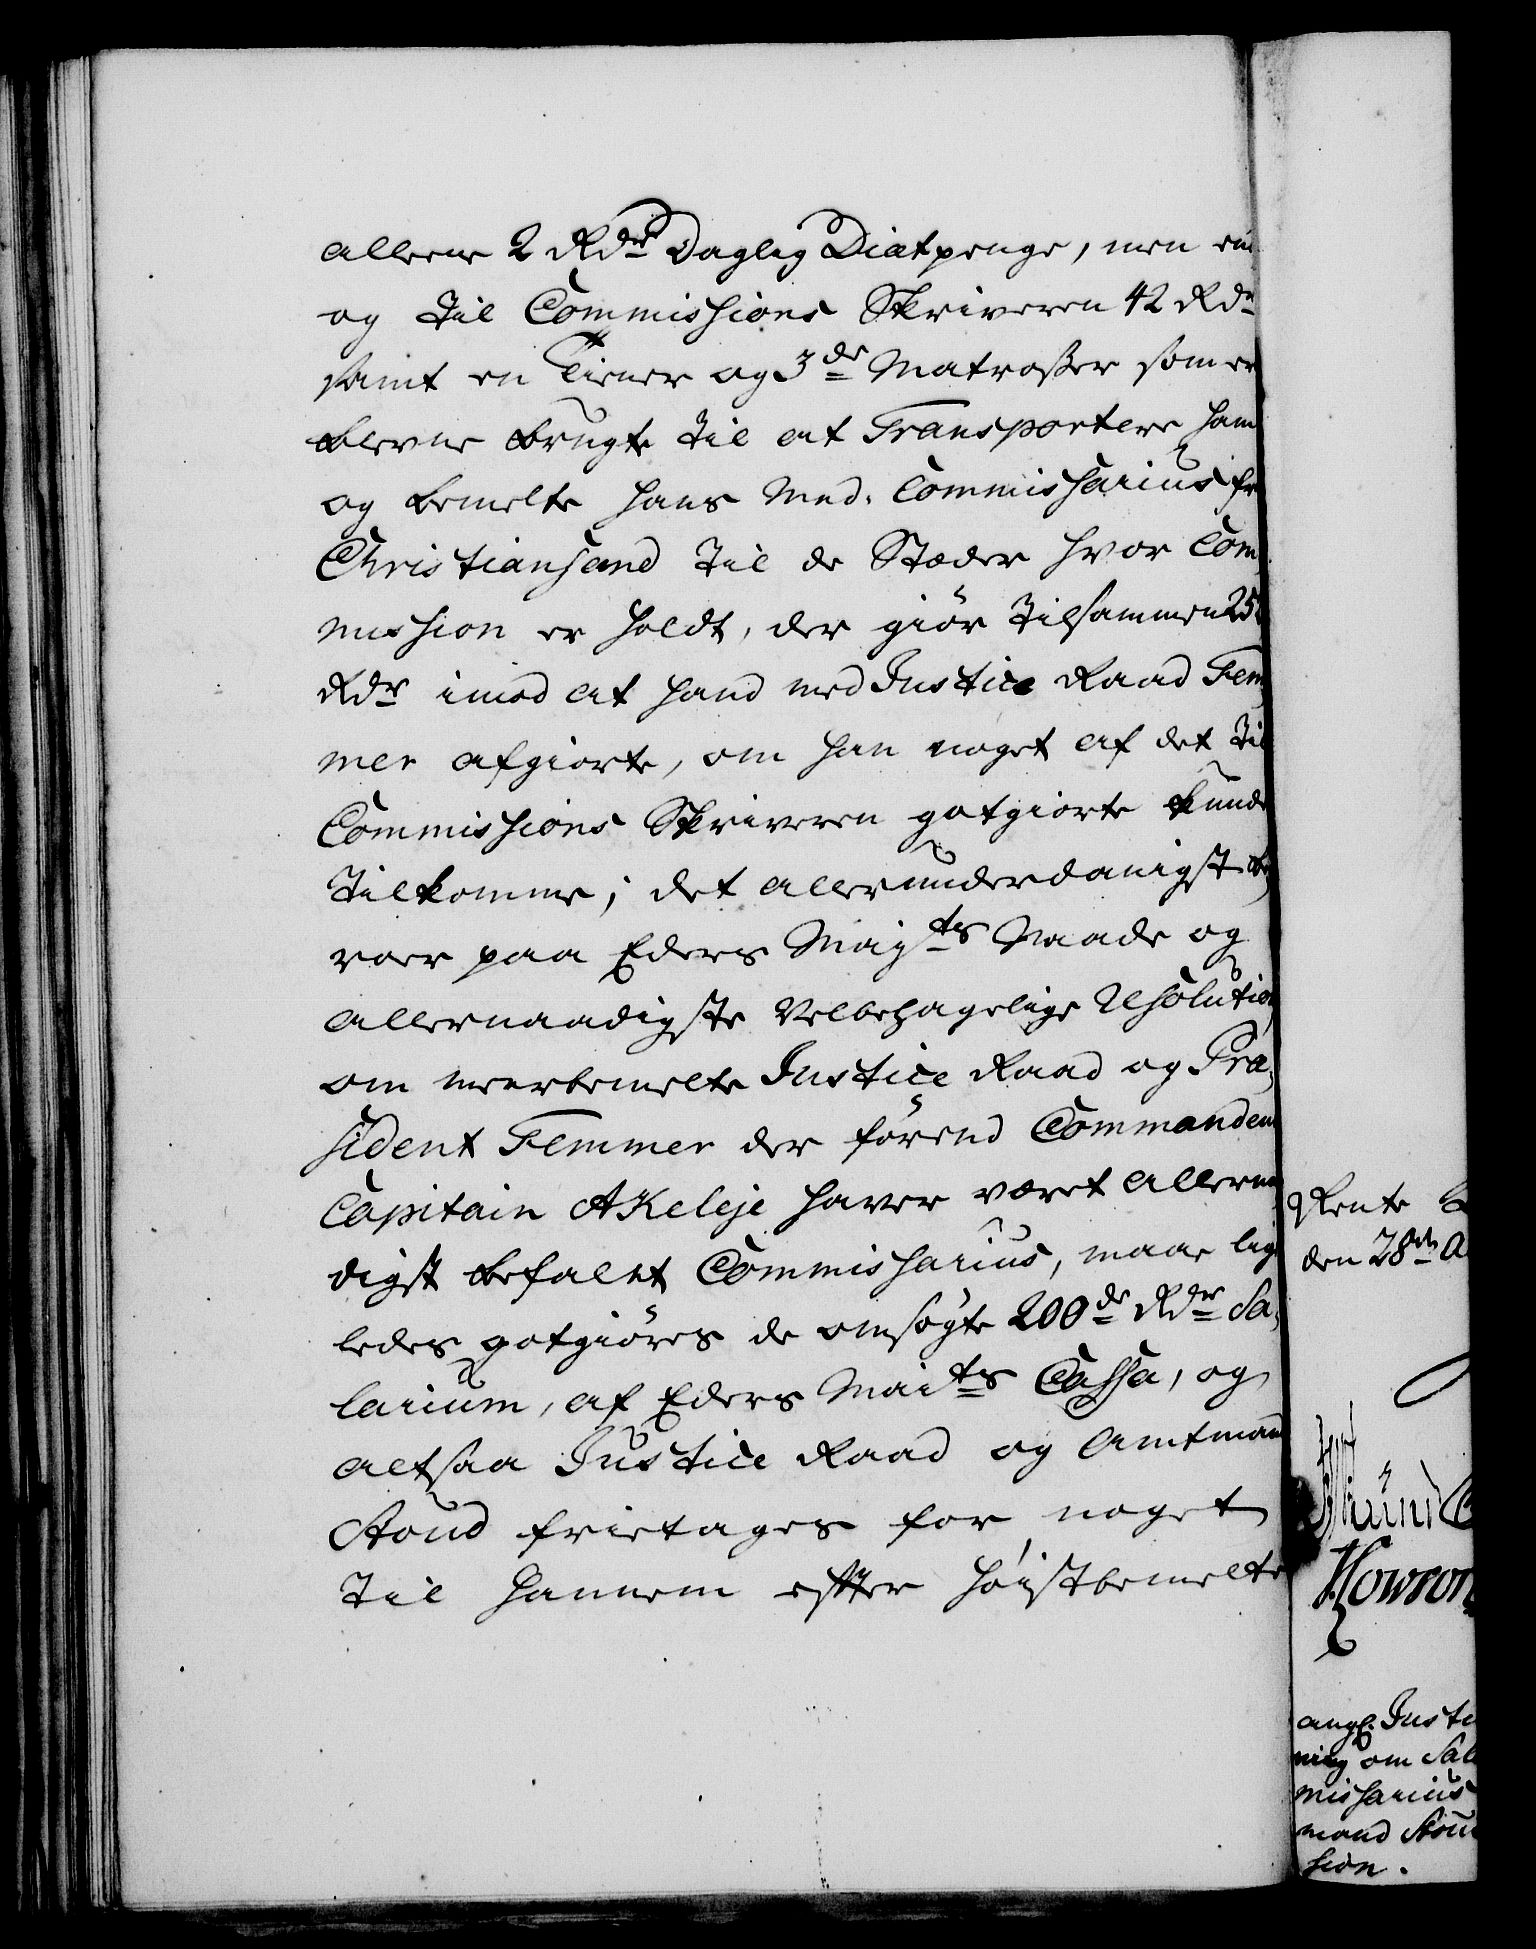 alleene 2 Rdr Daglig Diætpenge, men end
og til Commissions Skriveren 42 Rdr
samt en Tiener og 3de Matroßer som er
blevne brugte til at Transportere ham
og bemelte hans Med. Commissarius fra
Christiansand til de Stæder hvor Com,
mission er holdt, der giør tilsammen 25
Rdr imod at hand med Justice Raad Fem,
mer afgiorte, om han noget af det til
Commissions Skriveren gotgiorte kunde
tilkomme; det allerunderdanigst be,
roer paa Eders Mayts Naade og
allernaadigste Velbehagelige Resolution
om meerbemelte Justice Raad og Præ,
sident Femmer der førend Commandeur
Capitain Akeleje haver været allernaa
digst befalet Commissarius, maae lige
ledes gotgiøres de ansøgte 200de Rdr Sa,
larium, af Eders Maits Cassa, og
altsaa Justice Raad og Amtmand
Stoud frietages for noget
til hannem efter høistbemelte
Rente
den 28de A
Howron
angl. Juste
ning om Sal
missarius
mand Stou
sion.